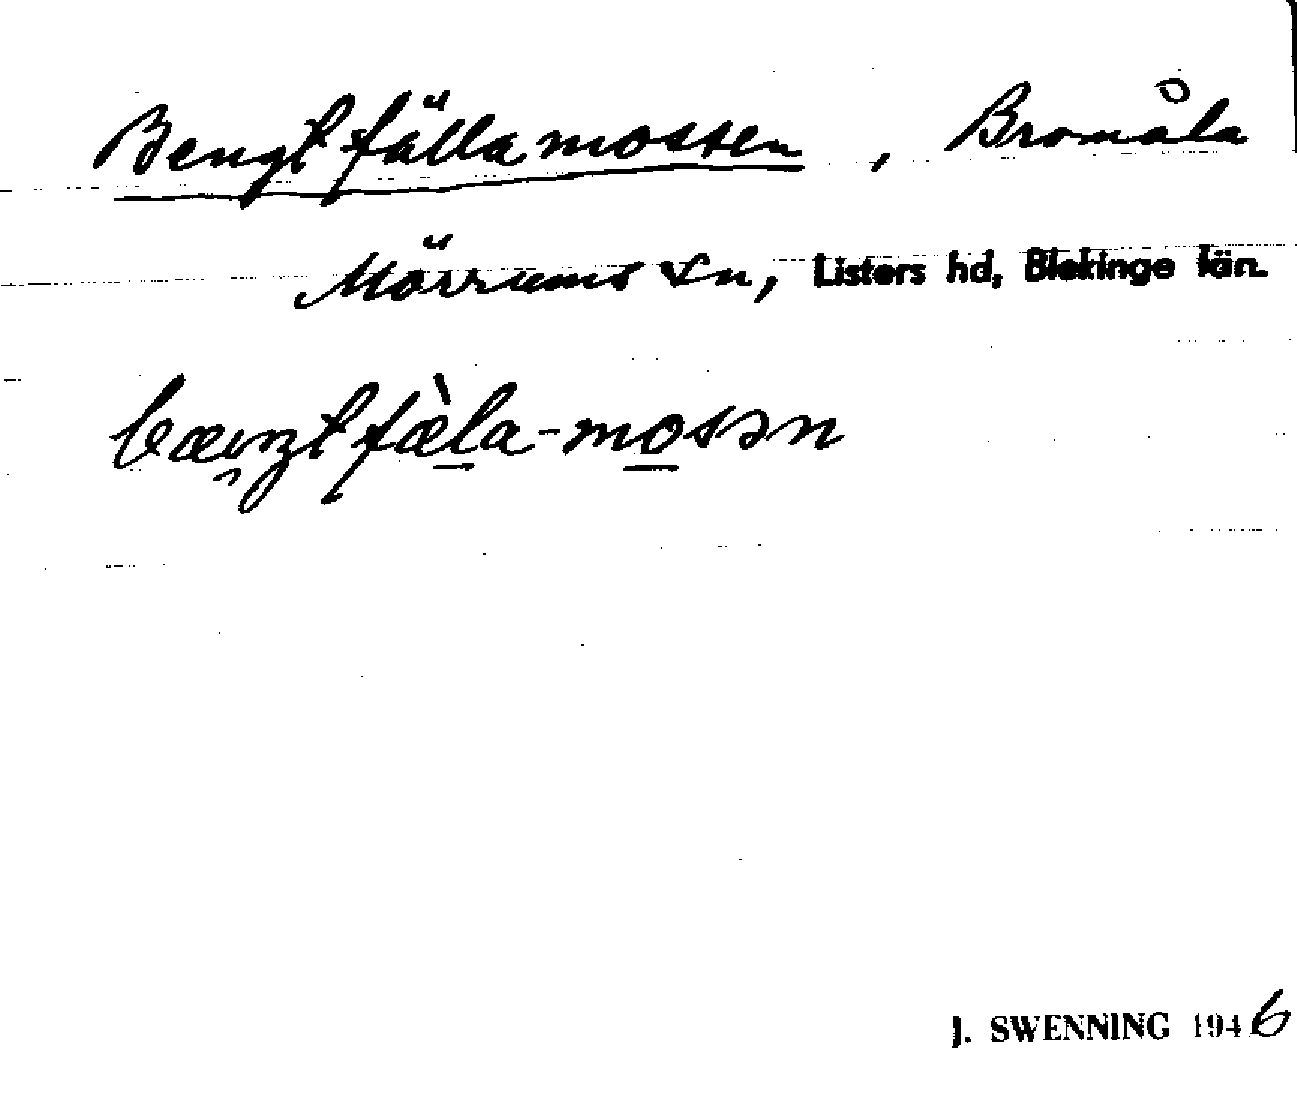 Bengtfällamossen, Bromåla
Mörrums sn, Listers hd, Blekinge län.
bæŋtfæ̀la-mosən
J. SWENNING 1946